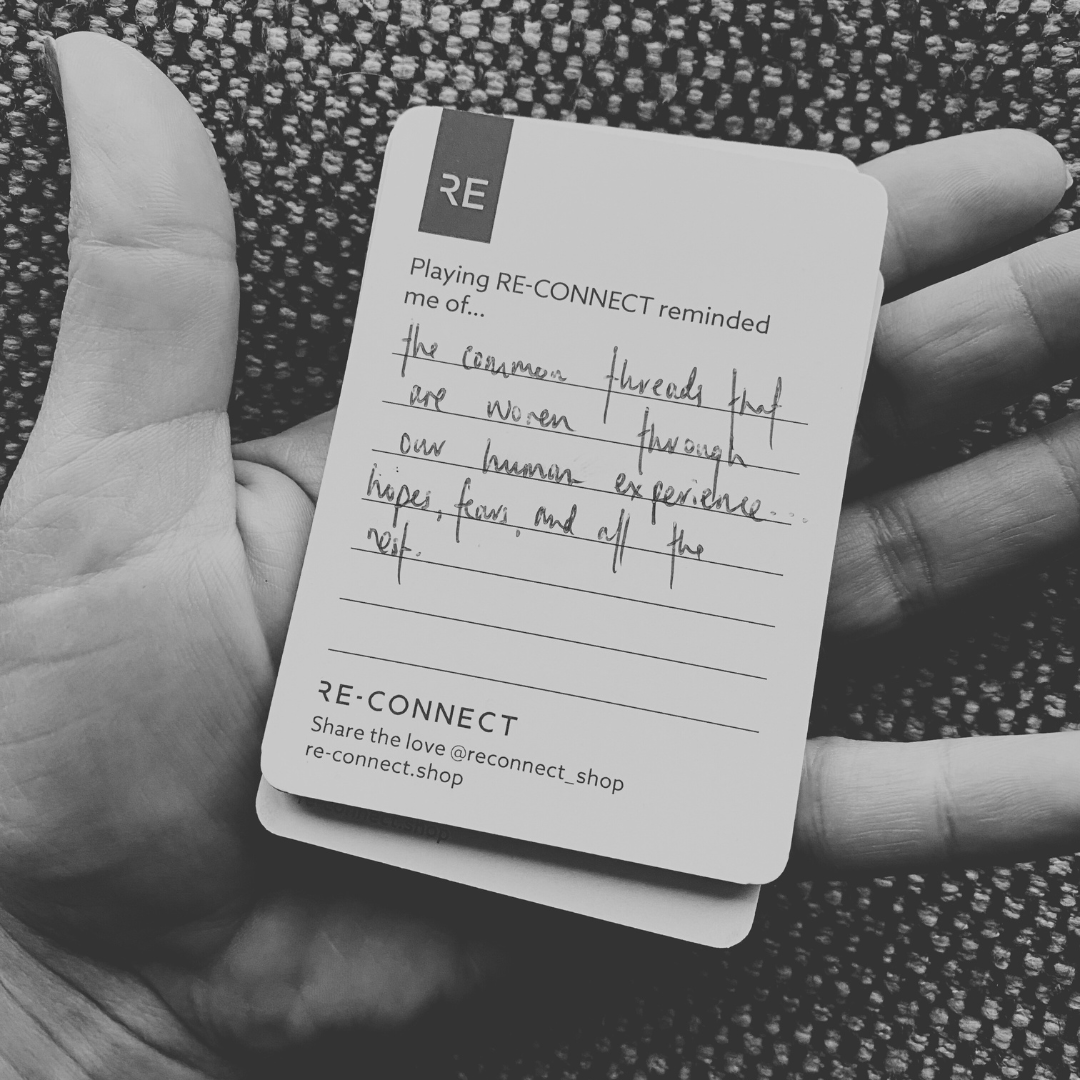 RE
Playing RE-CONNECT reminded
me of...
the common threads that
are woven through
our human experience...
hopes, fears, and all the
rest.
RE-CONNECT
Share the love @reconnect_shop
re-connect.shop